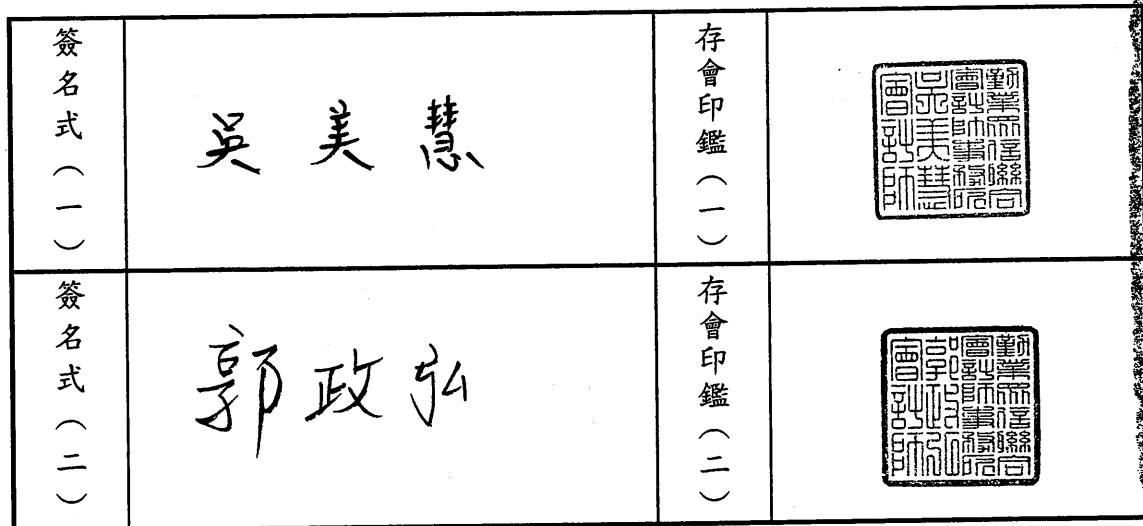 簽名式（一）
吳美慧
存會印鑑（一）
勤業眾信聯合
會計師事務所
吳美慧
會計師
簽名式（二）
郭政弘
存會印鑑（二）
勤業眾信聯合
會計師事務所
郭政弘
會計師